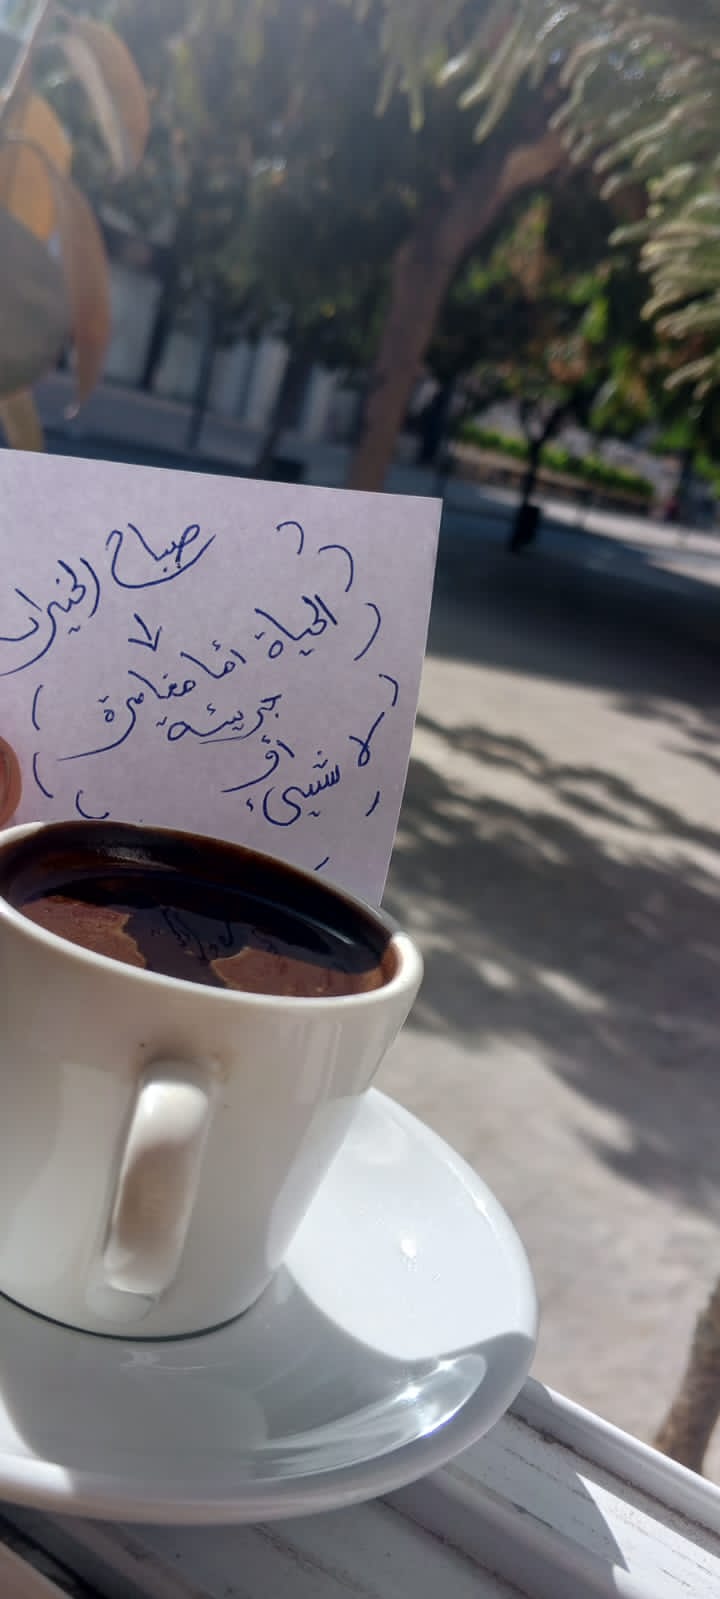 صباح الخيرات
الحياة أما مغامرة
جريئه
أو
لا شيئ